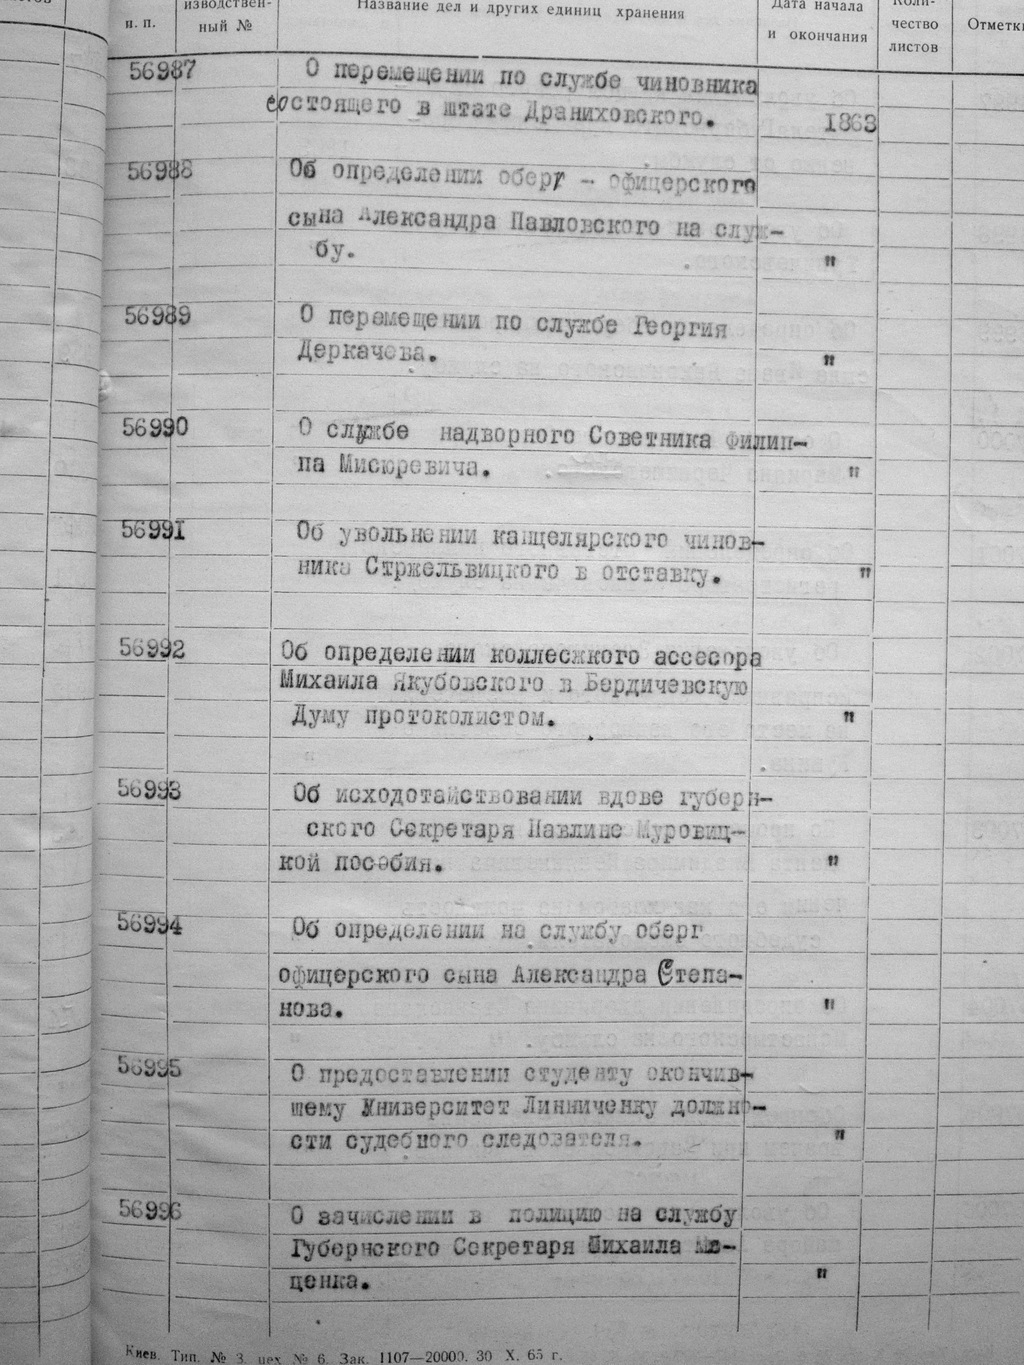 п. п.
изводствен-
ный №
Название дел и других единиц хранения
Дата начала
и окончания
Коли-
чество
листов
Отметки
56987 О перемещении по службе чиновника
состоящего в штате Драниховского. 1863
56988 Об определении оберг - офицерского
сына Александра Павловского на служ-
бу. "
56989 О перемещении по службе Георгия
Деркачева. "
56990 О службе надворного Советника Филип-
па Мисюревича. "
56991 Об увольнении канцелярского чинов-
ника Стржельвицкого в отставку. "
56992 Об определении коллесжкого ассесора
Михаила Якубовского в Бердичевскую
Думу протоколистом. "
56993 Об исходотайствовании вдове губерн-
ского Секретаря Павлине Муровиц-
кой пособия. "
56994 Об определении на службу оберг
офицерского сына Александра Степа-
нова. "
56995 О предоставлении студенту окончив-
шему Университет Линниченку должно-
сти судебного следователя. "
56996 О зачислении в полицию на службу
Губернского Секретаря Михаила Ма-
ценка. "
Киев. Тип. № 3, цех № 6. Зак. 1107—20000. 30 X. 65 г.